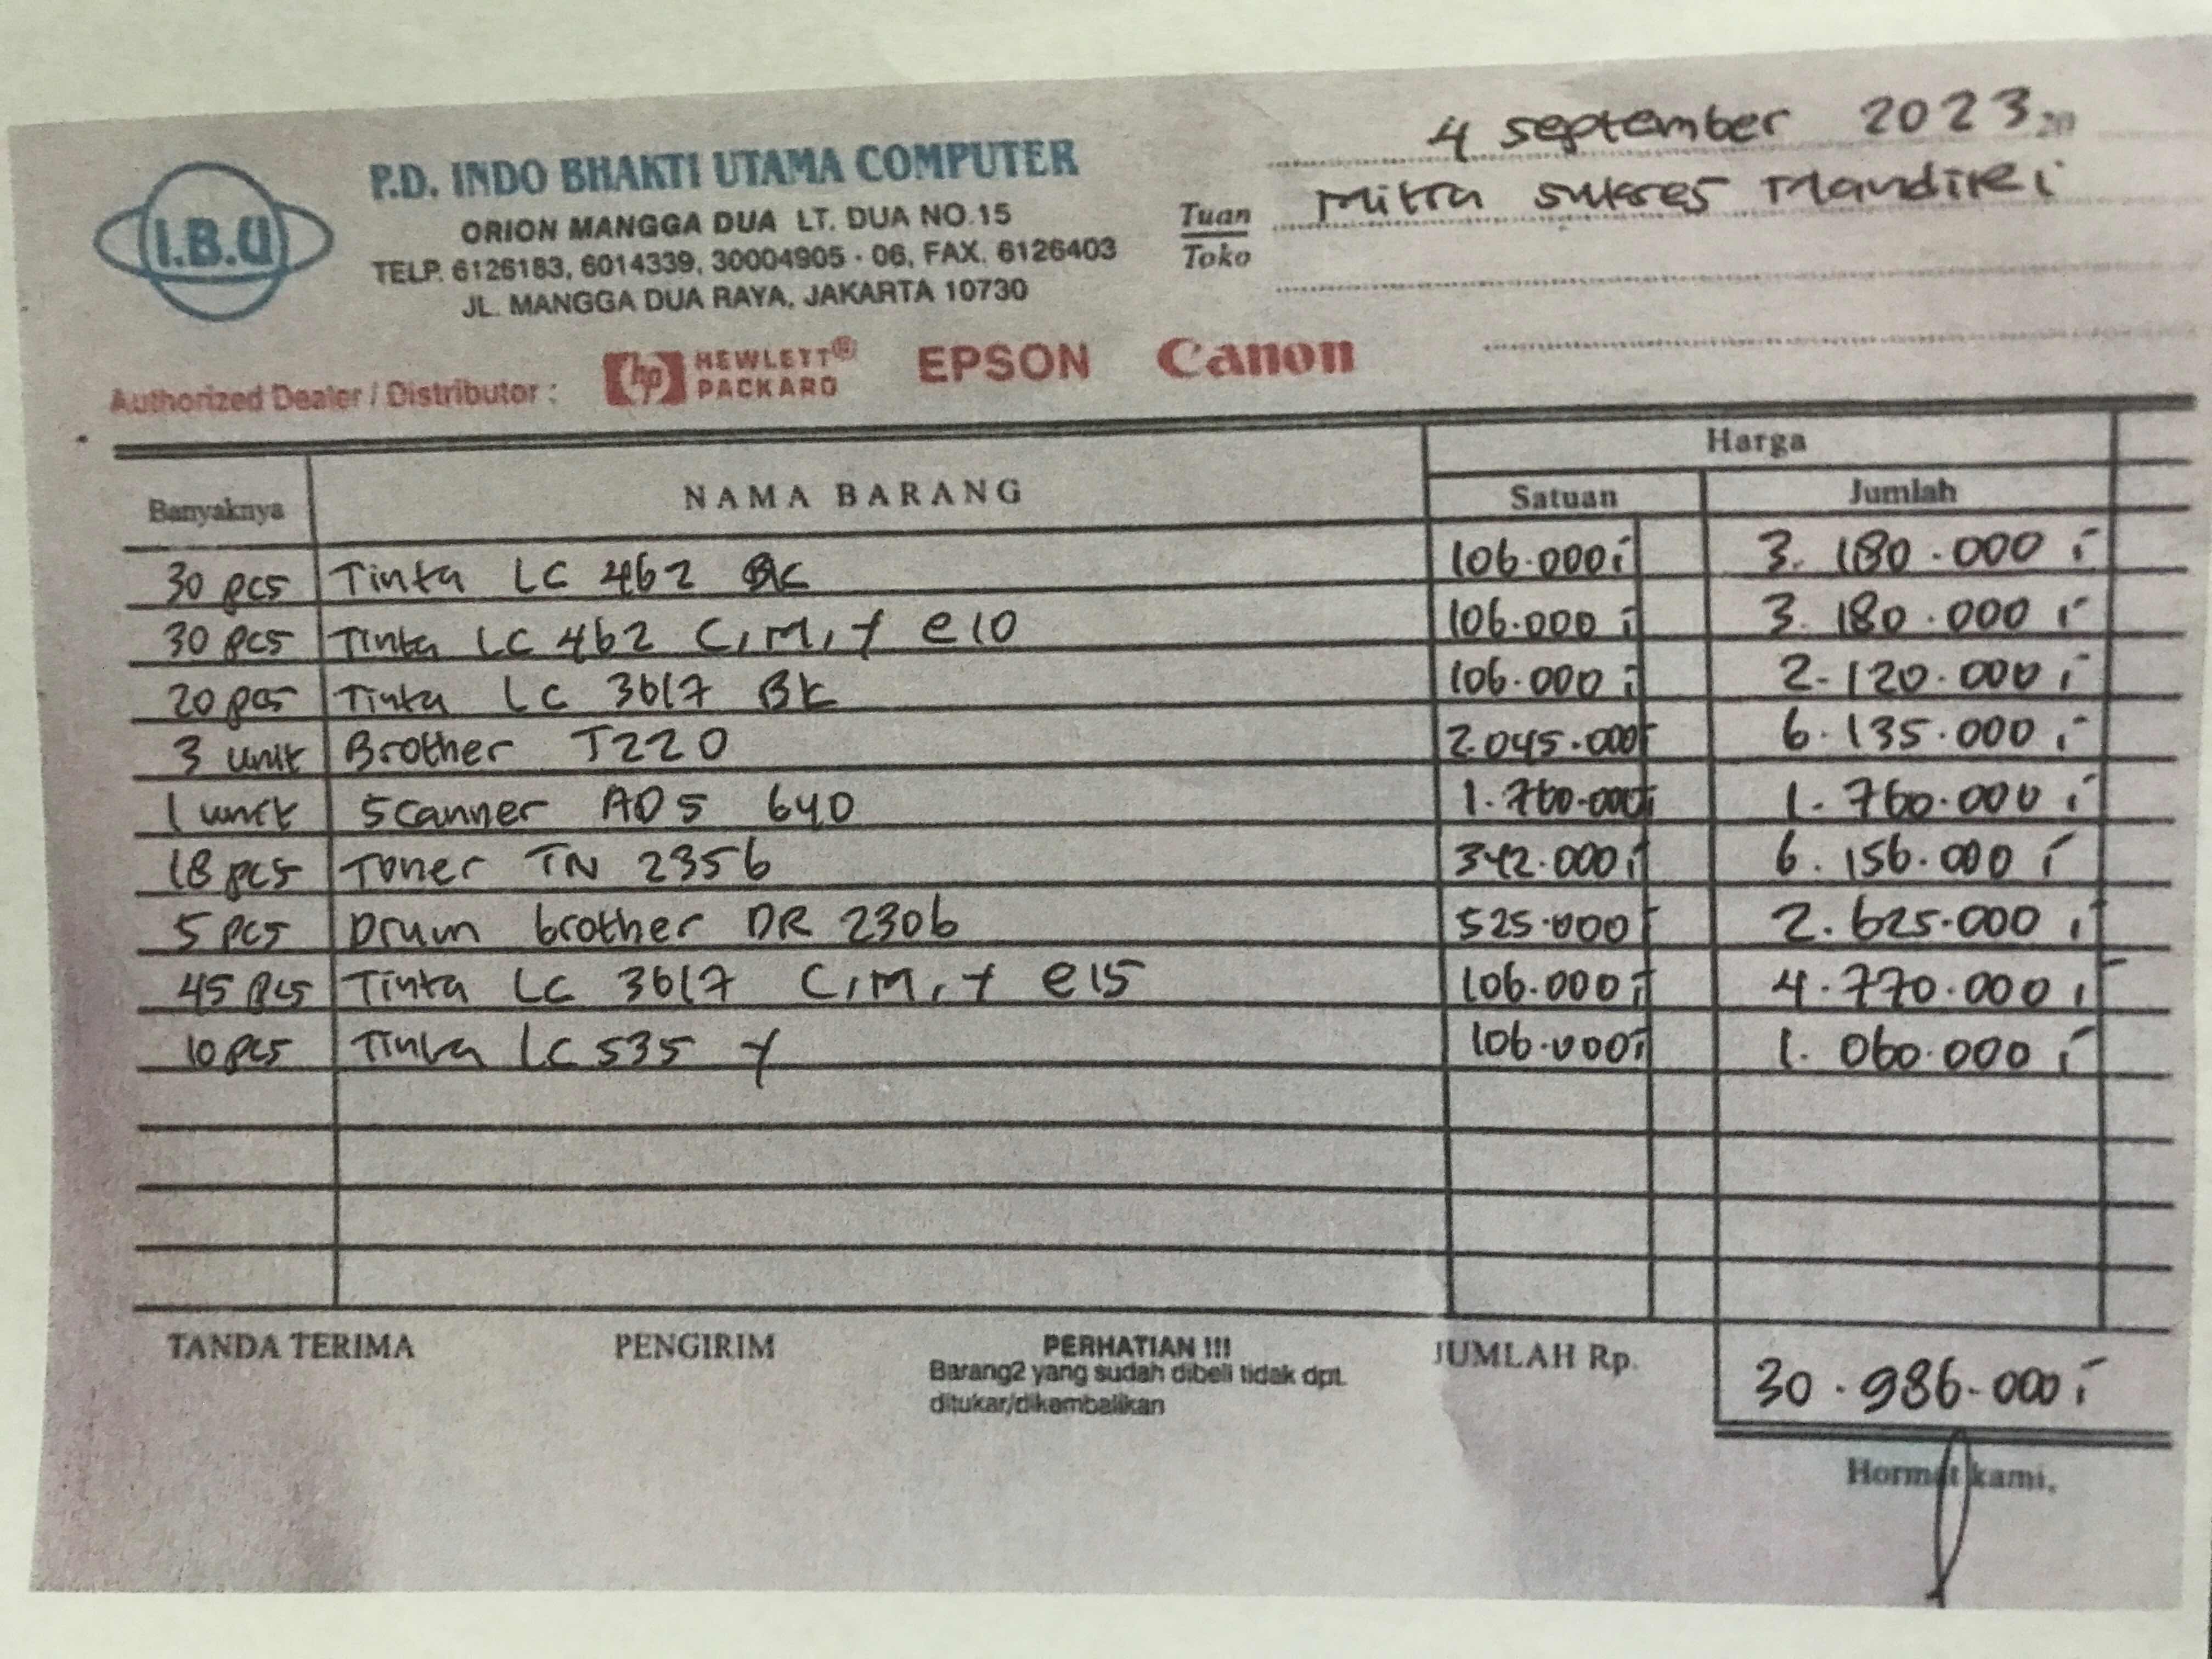 4 September 2023 20
I.B.U
P.D. INDO BHAKTI UTAMA COMPUTER
ORION MANGGA DUA LT. DUA NO.15
TELP. 6126183, 6014339, 30004905 - 06, FAX. 6126403
JL. MANGGA DUA RAYA, JAKARTA 10730
Tuan Mitra Sukses Mandiri
Toko
Authorized Dealer / Distributor : hp HEWLETT® PACKARD EPSON Canon
Banyaknya NAMA BARANG Harga
Satuan Jumlah
30 pcs Tinta LC 462 BK 106.000,- 3.180.000,-
30 pcs Tinta LC 462 C,M,Y @10 106.000,- 3.180.000,-
20 pcs Tinta LC 3617 BK 106.000,- 2.120.000,-
3 unit Brother T220 2.045.000,- 6.135.000,-
1 unit Scanner ADS 640 1.760.000,- 1.760.000,-
18 pcs Toner TN 2356 342.000,- 6.156.000,-
5 pcs Drum brother DR 2306 525.000,- 2.625.000,-
45 pcs Tinta LC 3617 C,M,Y @15 106.000,- 4.770.000,-
10 pcs Tinta LC 535 Y 106.000,- 1.060.000,-
TANDA TERIMA PENGIRIM PERHATIAN !!! JUMLAH Rp. 30.986.000,-
Barang2 yang sudah dibeli tidak dpt.
ditukar/dikembalikan
Hormat kami,